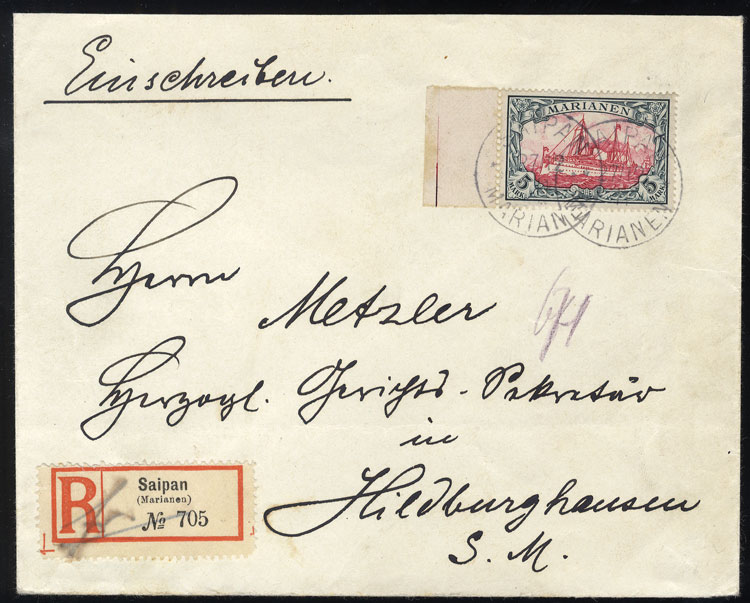 Einschreiben.
MARIANEN
5 MARK 5 MARK
SAIPAN SAIPAN
MARIANEN MARIANEN
Herrn Metzler
Herzogl. Gerichts-Sekretär
in
Hildburghausen
S. M.
R
Saipan
(Marianen)
№ 705